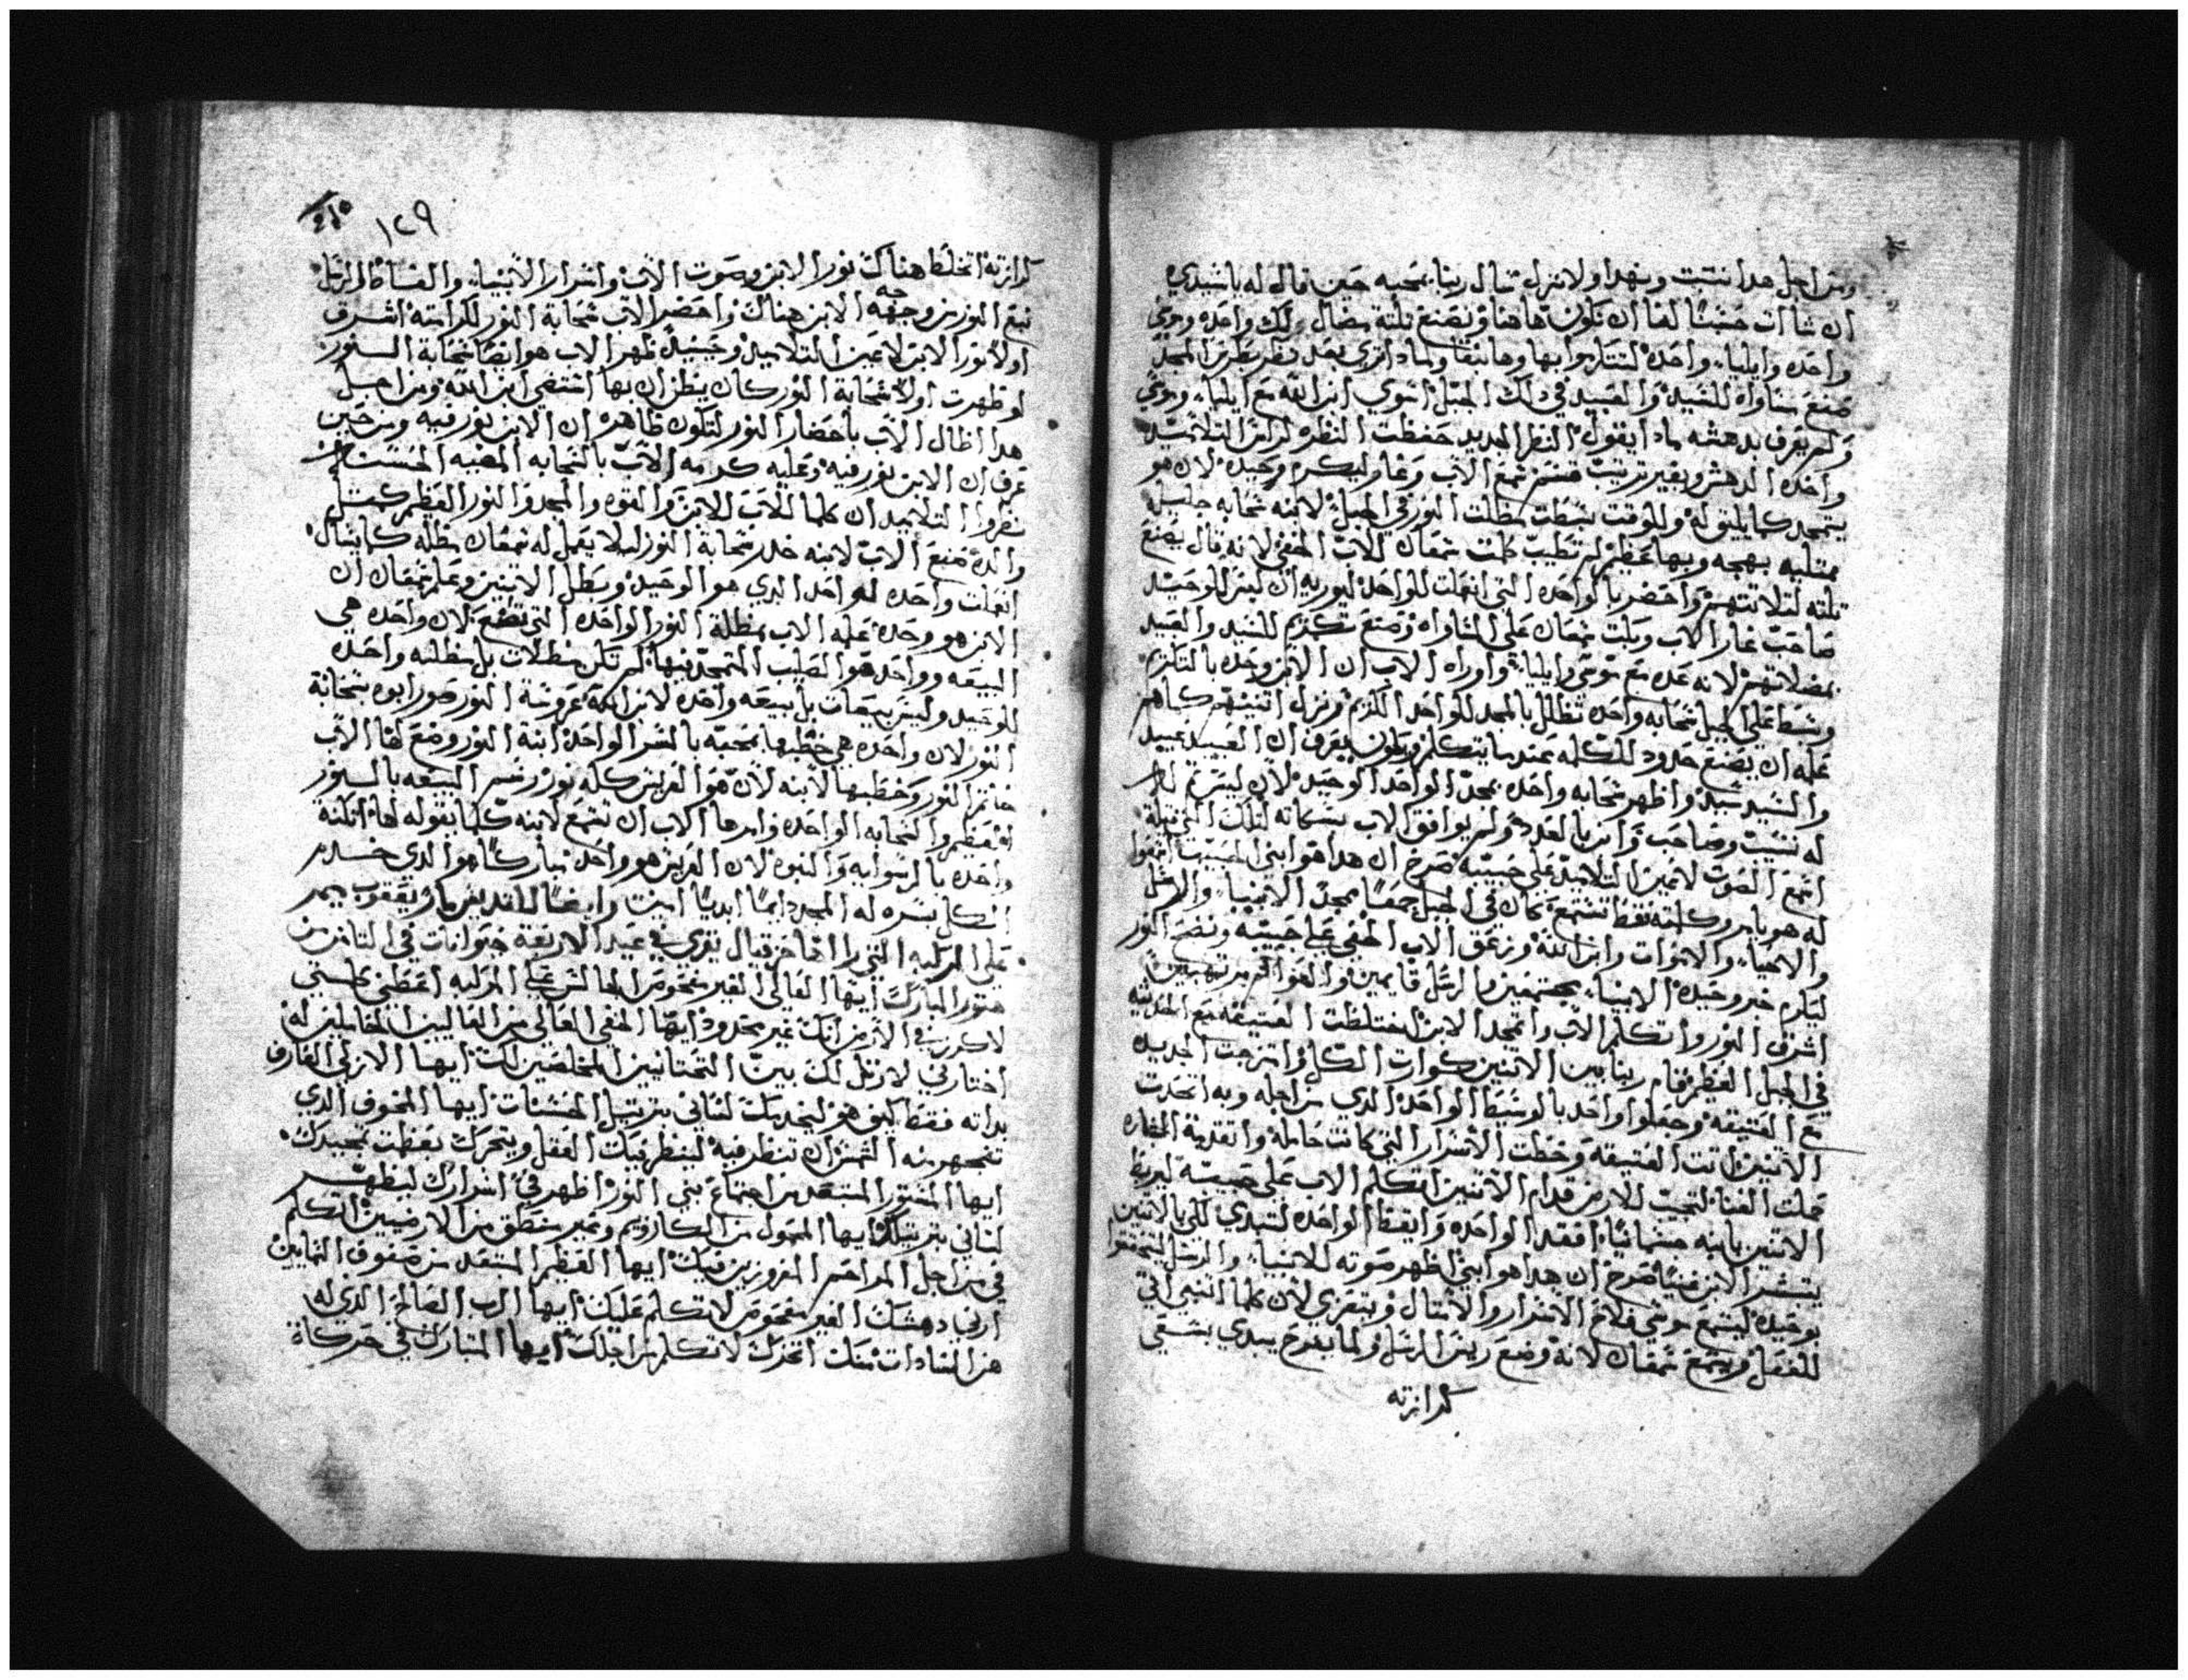 ومن اجل هدا نتبت وبهدا ولا نزل تتال ربنا بمحبه حين قال له يا سيدي
ان شات حسنًا لنا ان نكون هاهنا ونصنع تلتة مضال لك واحده وموسي
واحده وايليا واحده لنتتاربوا بها وها نبقا ولمادا تري بعد نظر بطرس المجد
صنع مساواه للسيد والعبيد في دلك الجبل استوي ابن الله مع ايليا وموسي
ولم يعرف بدهشه مادا يقول النظر الجديد خفظت النظره لراس التلاميد
واخده الدهش وبغير ترتيب قسم سمع الاب وغار ليكرم وحيده لان هو
يتمجد كما يليق له وللوقت تبسطت مظلت النور في الجبل لابنه سحابه جليله
ممتليه بهجه وبها عظيم لم تطيب كلمت سمعان للاب المخفي لانه قال يصنع
تلته لتلاتتهم واحضر بالواحده التي انعملت للواحد ليوريه ان ليس للوحيد
صاحب غار الاب وبكت سمعان علي المساواه وصنع تكريم للسيد والعبيد
بمضلاتهم لانه عده مع موسي وايليا واوراه الاب ان الابن وحده بالتكريم
وبسط علي الجبل سحابه واحده تظلل بالمجد للواحد الكريم ونزل اتنينهم كما هم
علمه ان يصنع حدود للكلمه عندما يتكلم ويكون يعرف ان العبيد عبيد
والسيد سيد واظهر سحابه واحده بمجد الواحد الوحيد لان ليس تم للاب
له نسيت وصاحب وابن بالعدد ولم يوافق الاب بسكاته لتلك التي قبلة
اسمع الصوت لاعين التلاميد علي حبيبه صرخ ان هدا هو ابني الحبيب اسمعوا
له هو يامر وكلمته فقط تستمع كان في الجبل جمعًا بمجد الانبيا والرسل
والاحيا والاموات وابن الله وزعق الاب المخفي علي حبيبه ونضح النور
ليكرم خبر وحيده الانبيا مجتمعين والرسل قايمين والعوالم مرتهبين
اشرق النور واتكلم الاب واتمجد الابن اختلطت العتيقه مع الحديثه
في الجبل العظيم قام ربنا بين الاتنين كوارت الكل وامتزجت الجديده
مع العتيقه وجعلوا واحد بالوسيط الواحد الدي من اجله وبه اتحدت
الاتنين اتت العتيقه وحطت الاسرار التي كانت حامله واتقدمة المغاره
حملت الغنا لتجيب للارض قدام الاتنين اتكلم الاب علي حبيبه ليربط
الاتنين بابنه جسمانيًا افقد الواحده وايقظ الواحده لتبدي لكي بالاتنين
يتبشر الابن غنيًا صرخ ان هدا هو ابني اظهر صوته للانبيا والرسل ليتحققوا
بوحيده ليسمع موسي فلاح الاسرار والامتال ويتعزي لان كلما اتنبي اتي
للفعل ويسمع سمعان لانه وضع ريس الرسل ولما يفرح يبدي بسعي
كرازته
١٢٩
كرازته اتخلط هناك نور الابن وصوت الاب واسرار الانبيا والفساط الرسل
نبع النور من وجهه الابن هناك واحضر الاب سحابة النور لكرامته اشرق
اولًا نور الابن لاعين التلاميد وحينيد ظهر الاب هو ايضًا سحابة السنور
لو ظهرت اولًا سحابة النور كان ينظن ان بها استضي ابن الله ومن اجل
هدا اظال الاب باحضار النور لتكون ظاهره ان الابن نور فيه ومن حين
عرف ان الابن نور فيه وعليه كرمه الاب بالسحابه المضيه الحسنه
نظروا التلاميد ان كلما للاب للابن والقوه والمجد والنور العظيم كمتل
والده صنع الاب لابنه خدر سحابة النور ليلا يعمل له سمعان مظله كما يسال
انعملت واحده للواحد الدي هو الوحيد وبطل الاتنين وعلم سمعان ان
الابن هو وحده علمه الاب بمظلة النور الواحده التي تصنع لان واحده هي
البيعه وواحد هو الصليب المتمجد بها لم تكن مظلات بل مظله واحده
للوحيد وليس بيعات بل بيعه واحده لابن الله عروسة النور صور ابوه سحابة
النور لان واحده هي خطبها بمحبه بالسر الواحد ابنة النور وضع لها الاب
خدر النور وخطبها لابنه لان هو العريس كله نور رسم البيعه بالسنور
العظيم والسحابه الواحده وامرها الاب ان تسمع لابنه كلما يقوله لها اتكنه
واحده بالرسوليه والنبوه لان العريس هو واحد مباركًا هو الدي خدر
الكل بسره له المجد دايمًا ابديًا امين وايضًا للقديس مار يعقوب ميمر
علي المركبه التي راها حزقيال تقري في عيد الاربعة حيوانات في التامن من
هتور المبارك ايها العالي الغير مفحوص الجالس علي المركبه اعطني كلمتي
لاكرز في الارض انك غير محدود ايها المخفي العالي من العاليين الحاملين له
اختارني لارتل لك بين التحتانيين المخلصين لك ايها الازلي العارف
بداته فقط كيف هو ليخدمك لساني بترتيل الحسنات ايها المخوف الدي
تنجهر منه الشمس ان تنظر فيه لينظر فيك العقل ويتحرك بعظت تمجيدك
ايها المستور المبتعد من اجتماع بني النور اظهر في اسرارك ليظهر
لساني بترتيلك ايها المحمول من الكاروبيم وغير منطق من الارضيين اتكلم
في من اجل المراحم المفروزين فيك ايها العظيم المبتعد من صفوف السمايين
ارني دهشك الغير مفحوص لاتكلم عليك ايها الرب الصالح الذي له
هز السادات منك اتحرك لاتكلم من اجلك ايها المتبارك في حركاة